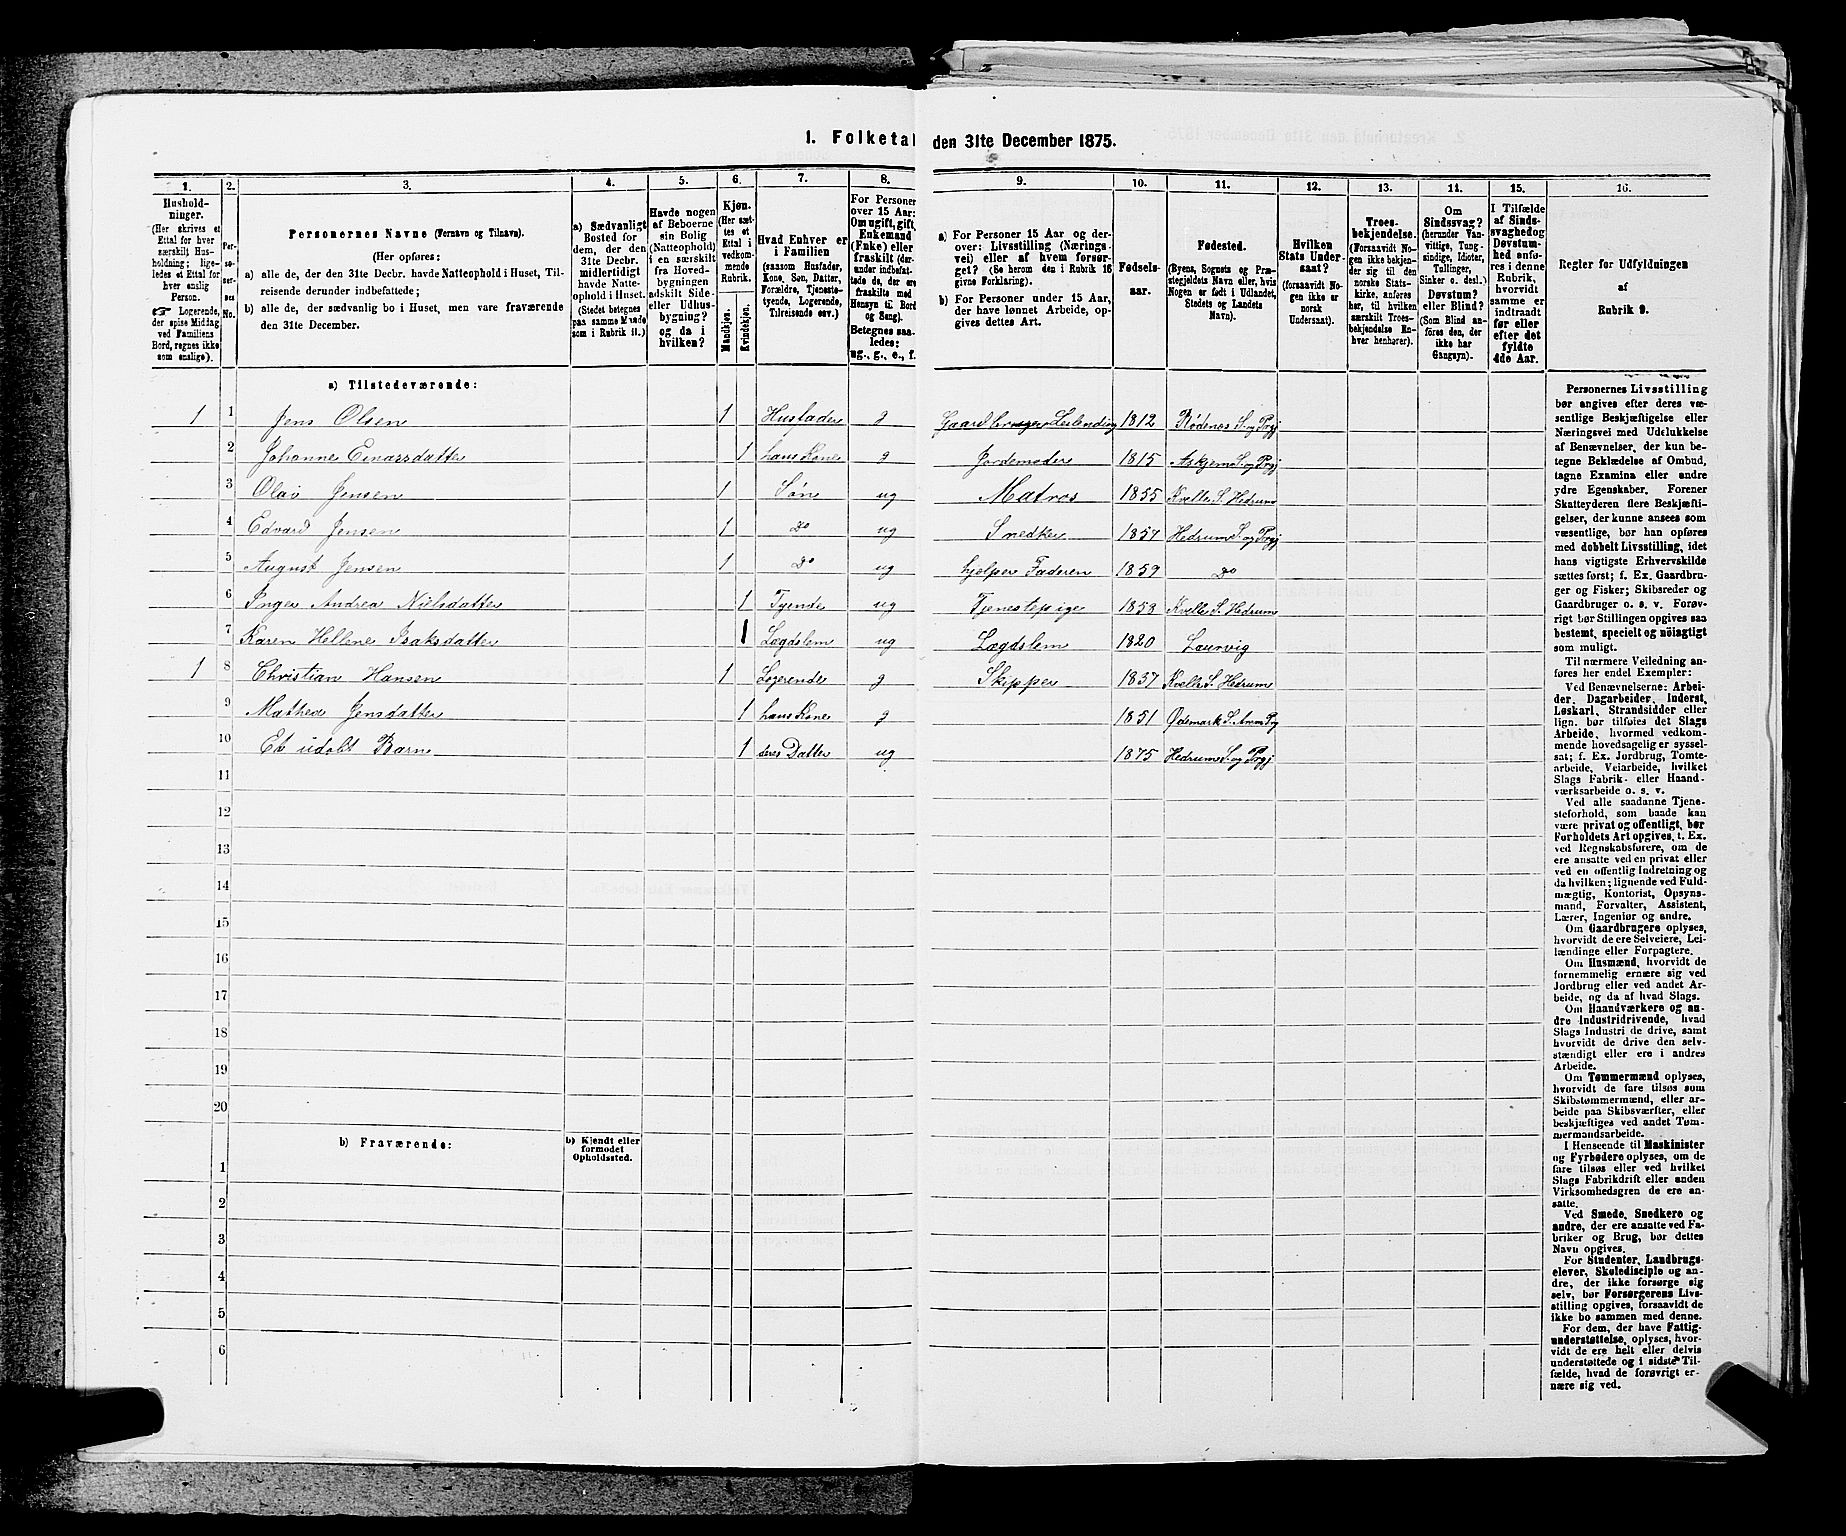 1. Folketal den 31te December 1875.
1. 2. 3. 4. 5. 6. 7. 8. 9. 10. 11. 12. 13. 14. 15. 16.
Hushold-
ninger.
(Her skrives et
Ettal for hver
særskilt Hus-
holdning; lige-
ledes et Ettal for
hver enslig
Person.
☞ Logerende,
der spise Middag
ved Familiens
Bord, regnes ikke
som enslige).
Per-
so-
ner-
nes
No.
Personernes Navne (Fornavn og Tilnavn).
(Her opføres:
a) alle de, der den 31te Decbr. havde Natteophold i Huset, Til-
reisende derunder indbefattede;
b) alle de, der sædvanlig bo i Huset, men vare fraværende
den 31te December.
a) Sædvanligt
Bosted for
dem, der den
31te Decbr.
midlertidigt
havde Natte-
ophold i Huset.
(Stedet betegnes
paa samme Maade
som i Rubrik 11.)
Havde nogen
af Beboerne
sin Bolig
(Natteophold)
i en særskilt
fra Hoved-
bygningen
adskilt Side-
eller Udhus-
bygning?
og da i
hvilken?
Kjøn.
(Her sæt-
tes et
Ettal i
vedkom-
mende
Rubrik.
Mandkjøn.
Kvindekjøn.
Hvad Enhver er
i Familien
(saasom Husfader,
Kone, Søn, Datter,
Forældre, Tjeneste-
tyende, Logerende,
Tilreisende osv.)
For Personer
over 15 Aar:
Om ugift, gift,
Enkemand
(Enke) eller
fraskilt (der-
under indbefat-
tede de, der ere
fraskilte med
Hensyn til Bord
og Seng).
Betegnes saa-
ledes:
ug., g., e., f.
a) For Personer 15 Aar og der-
over: Livsstilling (Nærings-
vei) eller af hvem forsør-
get? (Se herom den i Rubrik 16
givne Forklaring).
b) For Personer under 15 Aar,
der have lønnet Arbeide, op-
gives dettes Art.
Fødsels-
aar.
Fødested.
(Byens, Sognets og Præ-
stegjeldets Navn eller, hvis
Nogen er født i Udlandet,
Stedets og Landets
Navn).
Hvilken
Stats Under-
saat?
(forsaavidt No-
gen ikke er
norsk
Undersaat).
Troes-
bekjendelse.
(Forsaavidt No-
gen ikke bekjen-
der sig til den
norske Stats-
kirke, anføres
her, til hvilken
særskilt Troes-
bekjendelse En-
hver henhører).
Om
Sindssvag?
(herunder Van-
vittige, Tung-
sindige, Idioter,
Tullinger,
Sinker o. desl.)
Døvstum?
eller Blind?
(Som Blind an-
føres den, der
ikke har
Gangsyn).
I Tilfælde
af Sinds-
svaghed og
Døvstum-
hed anfø-
res i denne
Rubrik,
hvorvidt
samme er
indtraadt
før eller
efter det
fyldte
4de Aar.
Regler for Udfyldningen
af
Rubrik 9.
a) Tilstedeværende:
1 1 Jens Olsen 1 Husfader g Gaardbruger Leilending 1812 Rødenes S. og Prgj
2 Johanne Einarsdatter 1 hans Kone g Jordemoder 1815 Askjem S. og Prgj
3 Olav Jensen 1 Søn ug Matros 1855 Kvelle S. Hedrum
4 Edvard Jensen 1 Do ug Snedker 1857 Hedrum S. og Prgj
5 August Jensen 1 Do ug hjelper Faderen 1859 Do
6 Inger Andrea Nielsdatter 1 Tyende ug Tjenestepige 1853 Kvelle S. Hedrum
7 Karen Hellene Isaksdatter 1 Lægdslem ug Lægdslem 1820 Laurvig
1 8 Christian Hansen 1 Logerende g Skipper 1837 Kvelle S. Hedrum
9 Mathea Jensdatter 1 hans Kone g 1851 Ødemark S.
10 Et udøbt Barn 1 deres Datter ug 1875 Hedrum S. og Prgj
11
12
13
14
15
16
17
18
19
20
b) Fraværende: b) Kjendt eller
formodet
Opholdssted.
1
2
3
4
5
6
Personernes Livsstilling
bør angives efter deres væ-
sentlige Beskjæftigelse eller
Næringsvei med Udelukkelse
af Benævnelser, der kun be-
tegne Beklædelse af Ombud,
tagne Examina eller andre
ydre Egenskaber. Forener
Skatteyderen flere Beskjæfti-
gelser, der kunne ansees som
væsentlige, bør han opføres
med dobbelt Livsstilling, idet
hans vigtigste Erhvervskilde
sættes først; f. Ex. Gaardbru-
ger og Fisker; Skibsreder og
Gaardbruger o. s. v. Forøv-
rigt bør Stillingen opgives saa
bestemt, specielt og nöiagtigt
som muligt.
Til nærmere Veiledning an-
føres her endel Exempler:
Ved Benævnelserne: Arbei-
der, Dagarbeider, Inderst,
Løskarl, Strandsidder eller
lign. bør tilføies det Slags
Arbeide, hvormed vedkom-
mende hovedsagelig er syssel-
sat; f. Ex. Jordbrug, Tomte-
arbeide, Veiarbeide, hvilket
Slags Fabrik- eller Haand-
værksarbeide o. s. v.
Ved alle saadanne Tjene-
steforhold, som baade kan
være privat og offentligt, bør
Forholdets Art opgives, t. Ex.
ved Regnskabsførere, om de
ere ansatte ved en privat eller
ved en offentlig Indretning og
da hvilken; lignende ved Fuld-
mægtig, Kontorist, Opsyns-
mand, Forvalter, Assistent,
Lærer, Ingeniør og andre.
Om Gaardbrugere oplyses,
hvorvidt de ere Selveiere, Lei-
lændinge eller Forpagtere.
Om Husmænd, hvorvidt de
fornemmelig ernære sig ved
Jordbrug eller ved andet Ar-
beide, og da af hvad Slags.
Om Haandværkere og an-
dre Industridrivende, hvad
Slags Industri de drive, samt
hvorvidt de drive den selv-
stændigt eller ere i andres
Arbeide.
Om Tømmermænd oplyses,
hvorvidt de fare tilsøs som
Skibstømmermænd, eller ar-
beide paa Skibsværfter, eller
beskjæftiges ved andet Tøm-
mermandsarbeide.
I Henseende til Maskinister
og Fyrbødere oplyses, om de
fare tilsøs eller ved hvilket
Slags Fabrikdrift eller anden
Virksomhedsgren de ere an-
satte.
Ved Smede, Snedkere og
andre, der ere ansatte ved Fa-
briker og Brug, bør dettes
Navn opgives.
For Studenter, Landbrugs-
elever, Skoledisciple og an-
dre, der ikke forsørge sig
selv, bør Forsørgerens Livs-
stilling opgives, forsaavidt de
ikke bo sammen med denne.
For dem, der have Fattig-
understøttelse, oplyses, hvor-
vidt de ere helt eller delvis
understøttede og i sidste Til-
fælde, hvad de forøvrigt er-
nære sig ved.